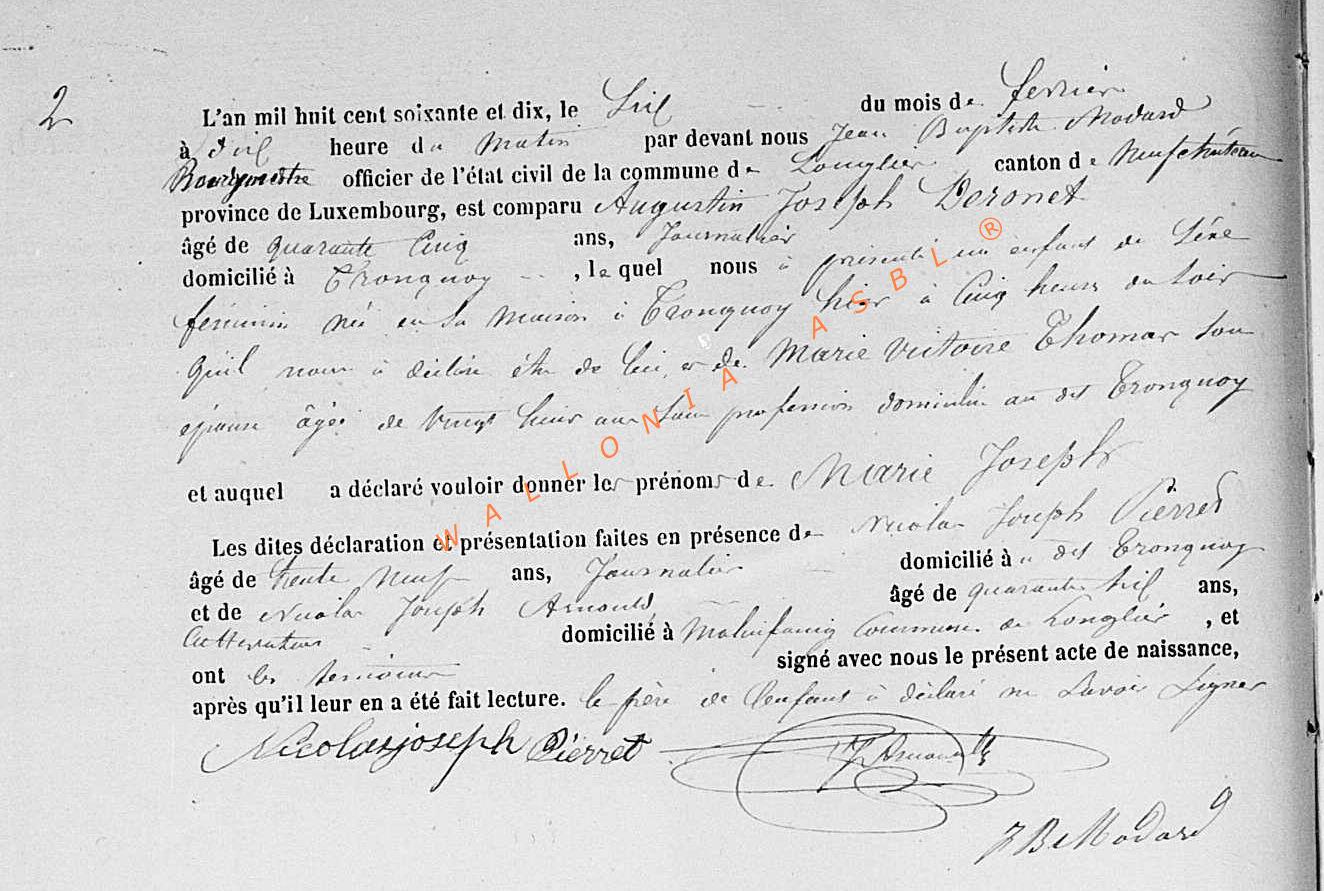 2
L'an mil huit cent soixante et dix, le Six du mois de fevrier
à dix heure du Matin par devant nous Jean Baptiste Modard
Bourgmestre officier de l'état civil de la commune de Longlier canton de Neufchâteau
province de Luxembourg, est comparu Augustin Joseph Deronet
âgé de quarante Cinq ans, Journalier
domicilié à Tronquoy, lequel nous à présenté un enfant de Séxe
féminin née en sa Maison à Tronquoy hier à Cinq heures du soir
qu'il nous à déclaré être de lui et de Marie Victoire Thomas son
épouse âgée de vingt huit ans sans profession domiciliée au dit Tronquoy
et auquel a déclaré vouloir donner les prénoms de Marie Joseph
Les dites déclaration et présentation faites en présence de Nicolas Joseph Pierret
âgé de trente Neuf ans, Journalier domicilié à a dit Tronquoy
et de Nicolas Joseph Arnould, âgé de quarante six ans,
Cultivateur domicilié à Molinfaing Commune de Longlier, et
ont les témoins signé avec nous le présent acte de naissance,
après qu'il leur en a été fait lecture. le père de l'enfant à déclaré ne savoir signer
Nicolasjoseph Pierret Arnould
JB Modard
WALLONIA ASBL ®